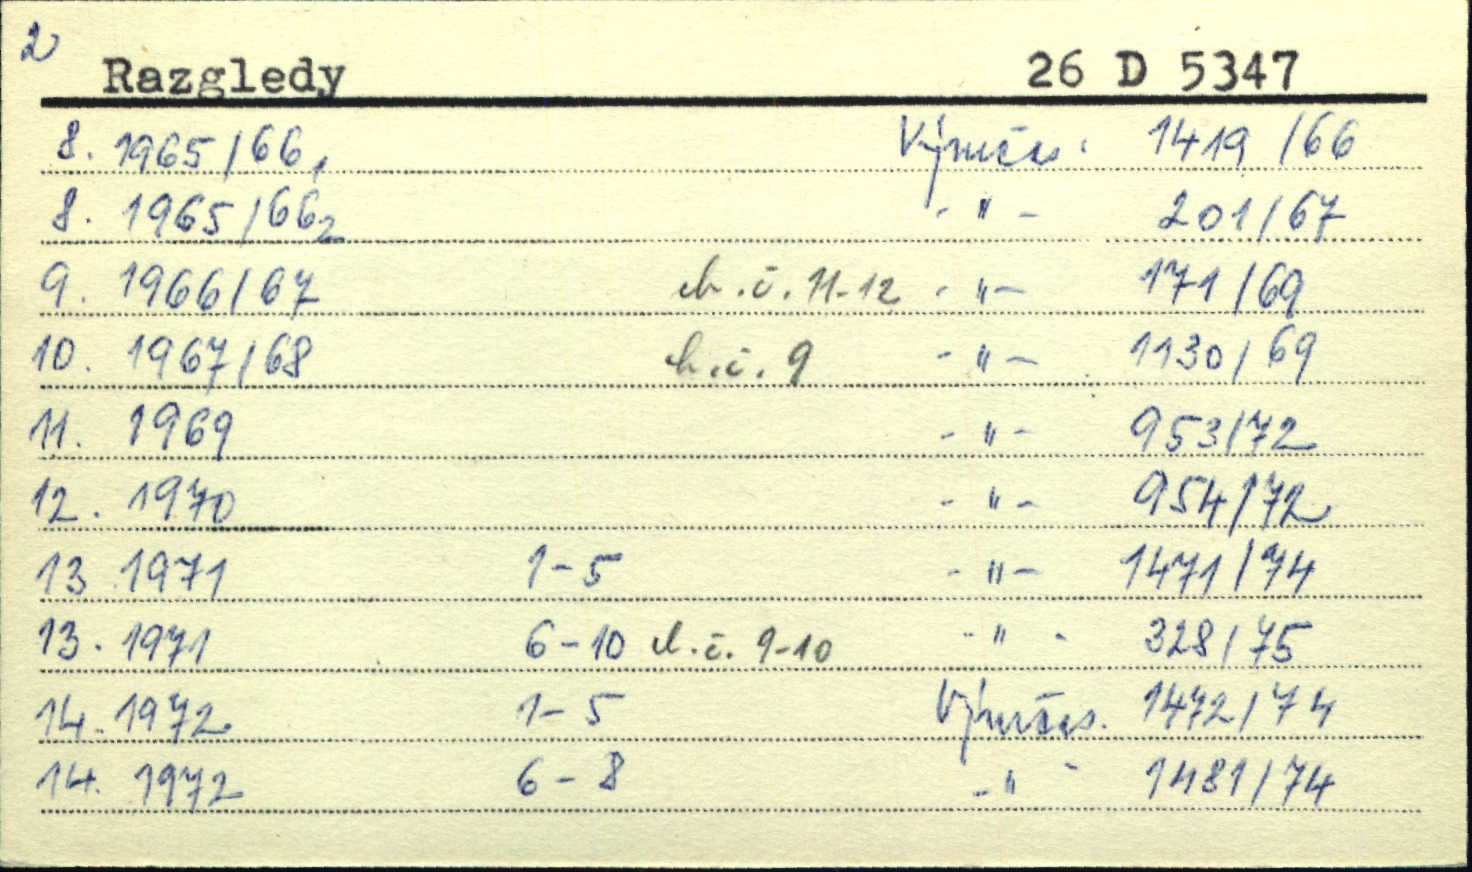 2
Razgledy 26 D 5347
8. 1965/66,1 Výměčas. 1419/66
8. 1965/66 2 -"- 201/67
9. 1966/67 ch.č. 11-12 -"- 171/69
10. 1967/68 ch.č. 9 -"- 1130/69
11. 1969 -"- 953/72
12. 1970 -"- 954/72
13 1971 1-5 -"- 1471/74
13. 1971 6-10 ch.č. 9-10 -"- 328/75
14. 1972 1-5 1472/74
14. 1972 6-8 -"- 1481/74